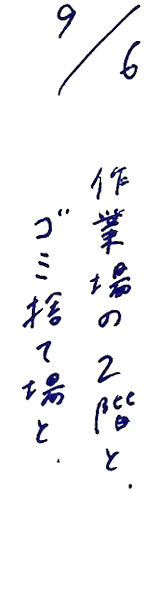 9/6
作業場の2階と.
ゴミ捨て場と.